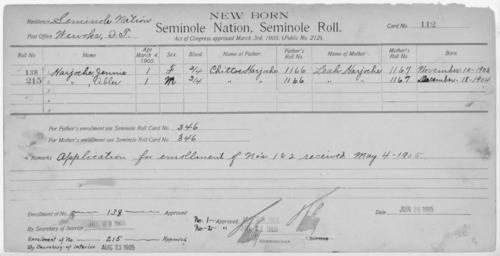 NEW BORN
Residence, Seminole Nation
Seminole Nation, Seminole Roll.
Card No. 112
Post Office, Wewoka, I.T.
Act of Congress approved March 3rd, 1905, (Public No. 212).
Roll No. Name Age March 4, 1905 Sex. Blood Name of Father. Father's Roll No. Name of Mother. Mother's Roll No. Born.
138 Harjoche, Jennie 1 F 3/4 Chittoe Harjoche 1166 Leah Harjoche 1167 November-10-1903
215 " , 1 M 3/4 " " 1166 " " 1167 December-18-1904
For Father's enrollment see Seminole Roll Card No. 346
For Mother's enrollment see Seminole Roll Card No. 346
Remarks Application for enrollment of Nos 1 & 2 received May 4-1905
Enrollment of No. 138 Approved
by Secretary of Interior
Enrollment of No. 215 Approved
By Secretary of Interior AUG 23 1905
No. 1-
No-2- "
1905
1905
Commissioner
JUN 1905